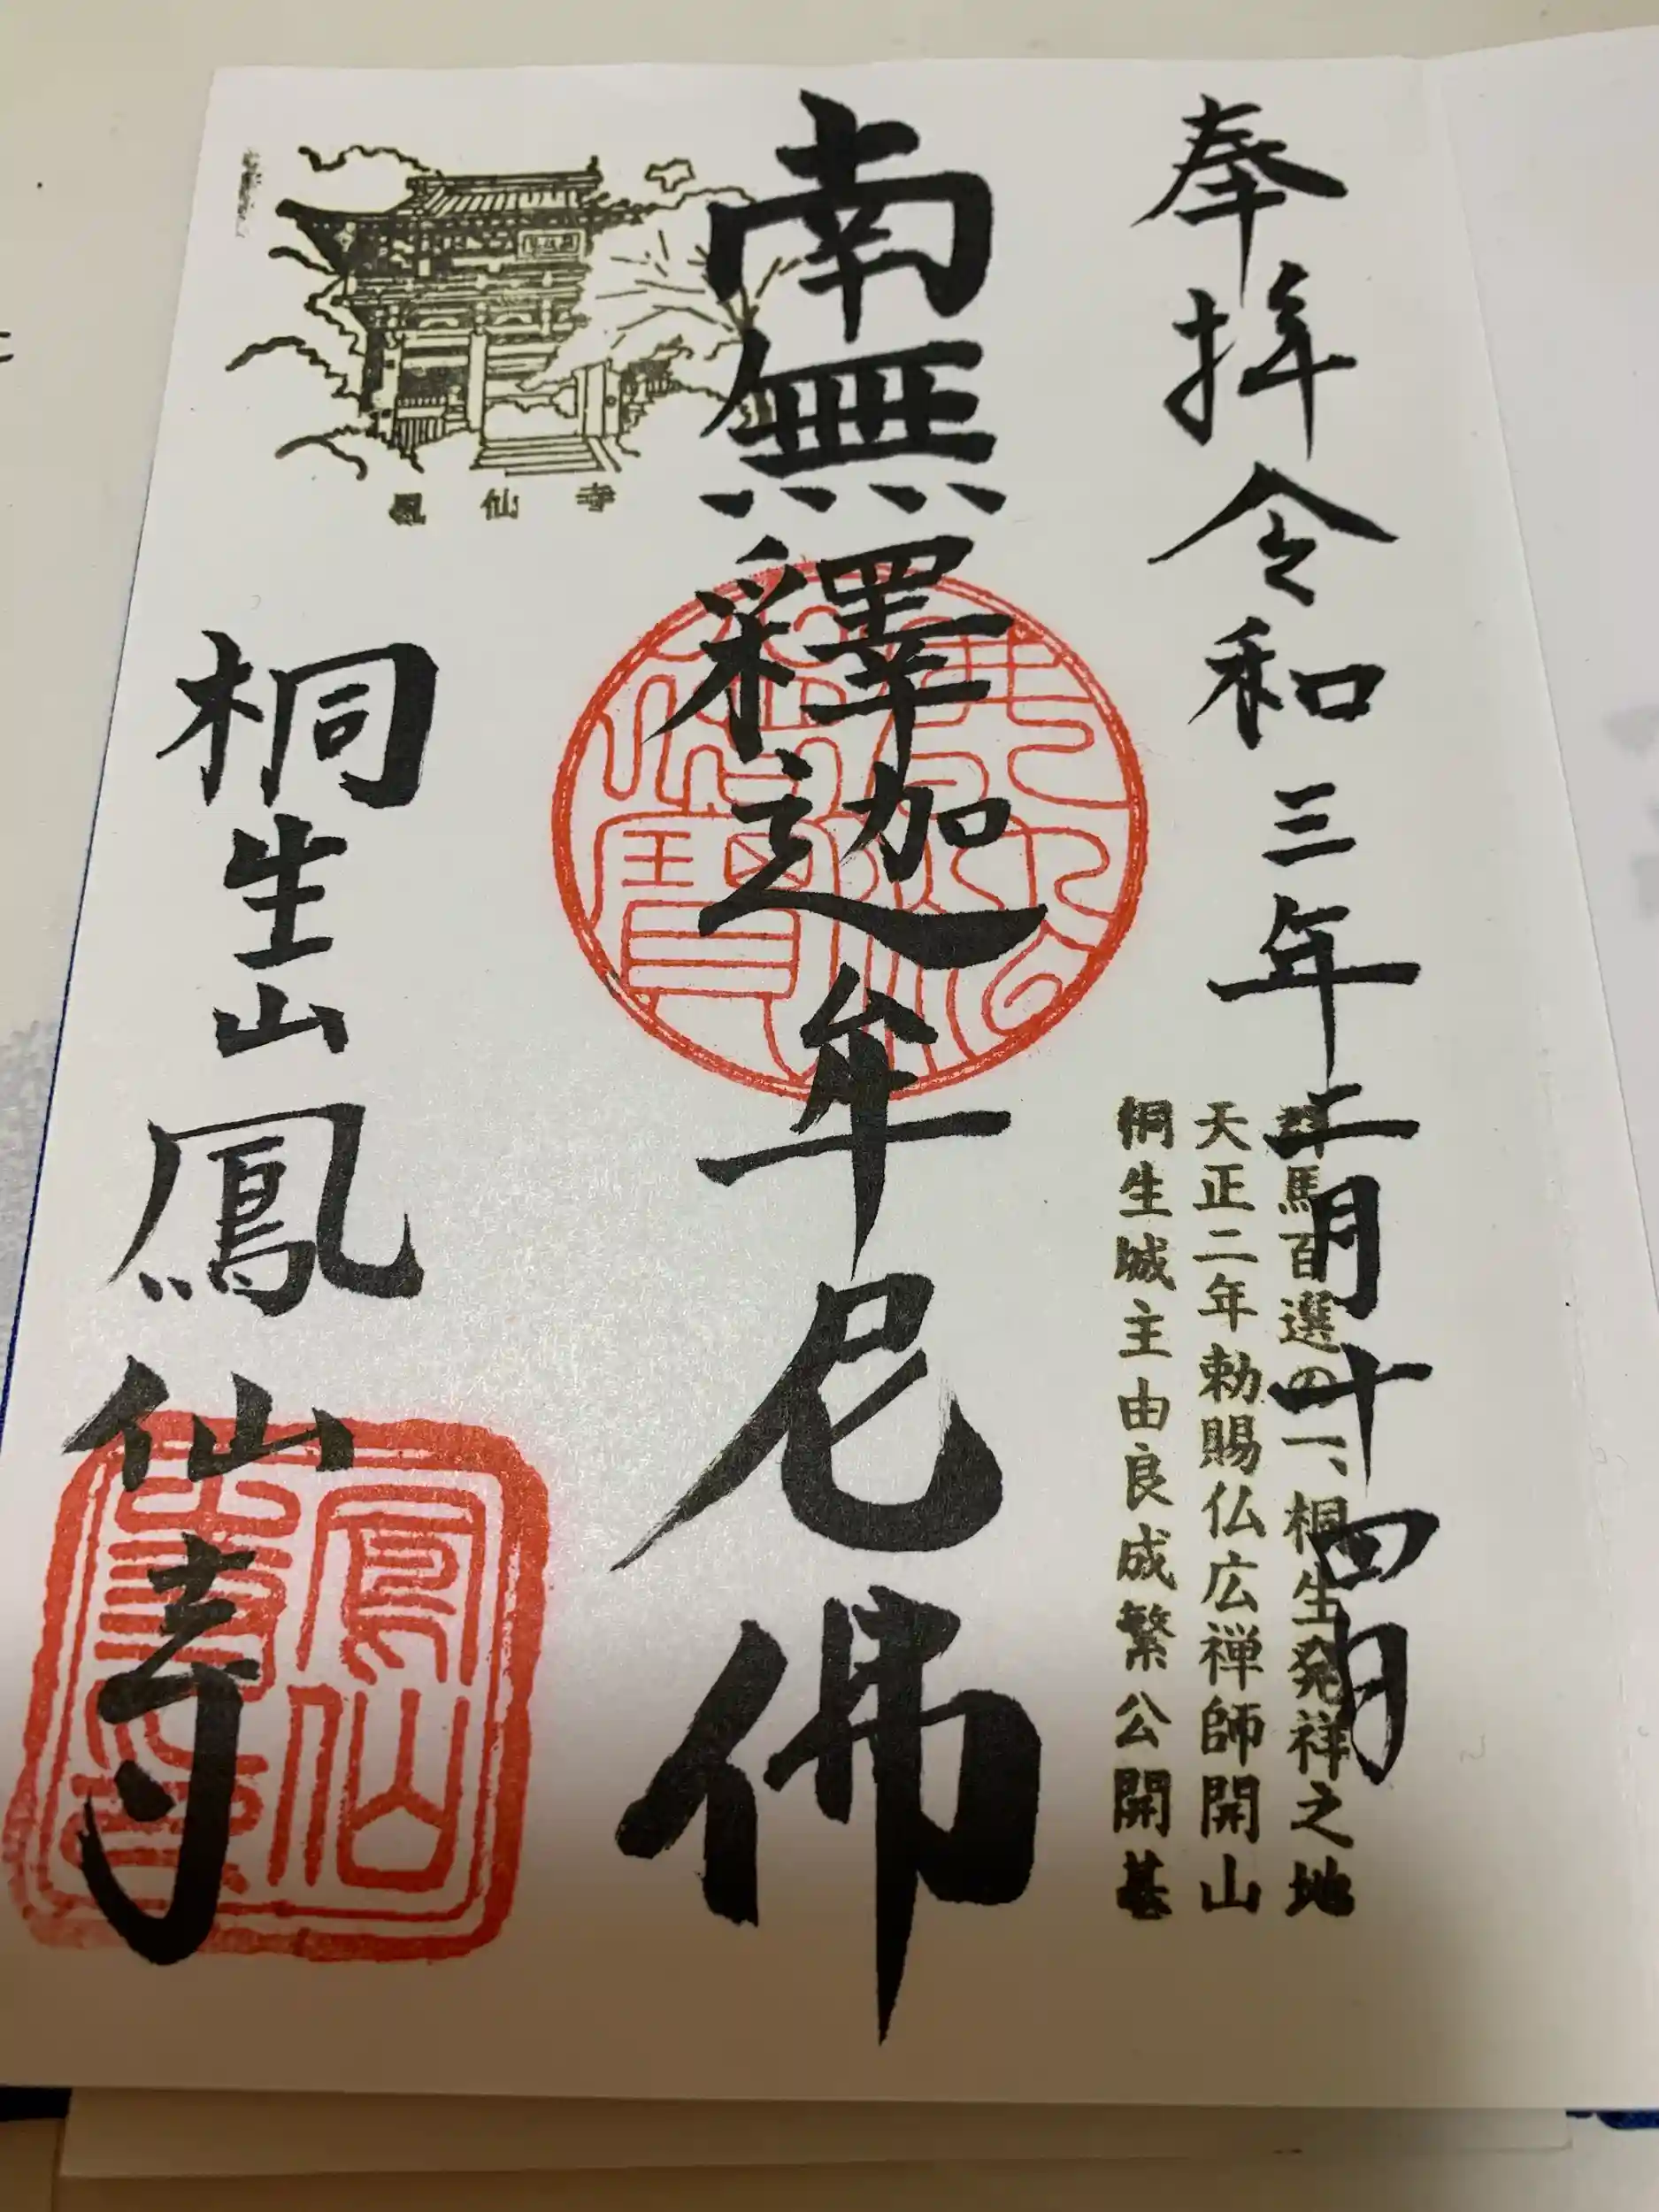 奉拝令和三年二月十四日
群馬百選の一、桐生発祥之地
天正二年勅賜仏広禅師開山
桐生城主由良成繁公開基
南無釋迦牟尼佛
鳳仙寺
桐生山鳳仙寺